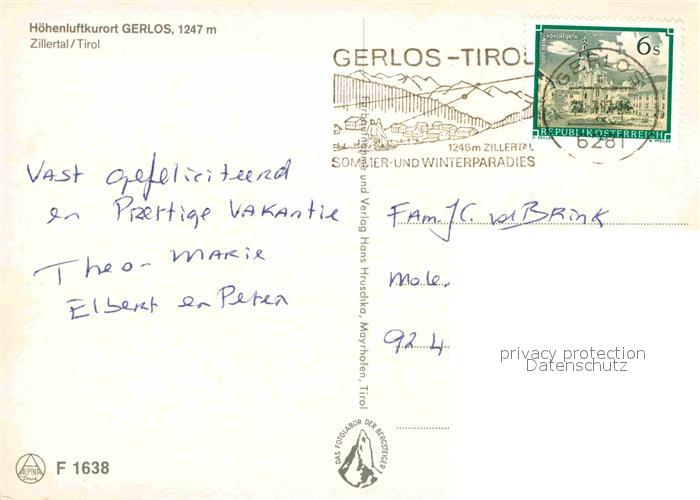 Höhenluftkurort GERLOS, 1247 m
Zillertal/Tirol
GERLOS-TIROL
1246m ZILLERTAL
SOMMER-UND WINTERPARADIES
6s
REPUBLIK ÖSTERREICH
GERLOS
6281
Vast gefeliciteerd
en Prettige Vakantie
Theo - Marie
Elbert en Peter
Fam. J.C. vd Brink
Mole
92 4
privacy protection
Datenschutz
und Verlag Hans Hruschka, Mayrhofen, Tirol
DAS FOTOLABOR DER BERGSTEIGER
ALPINA
F 1638